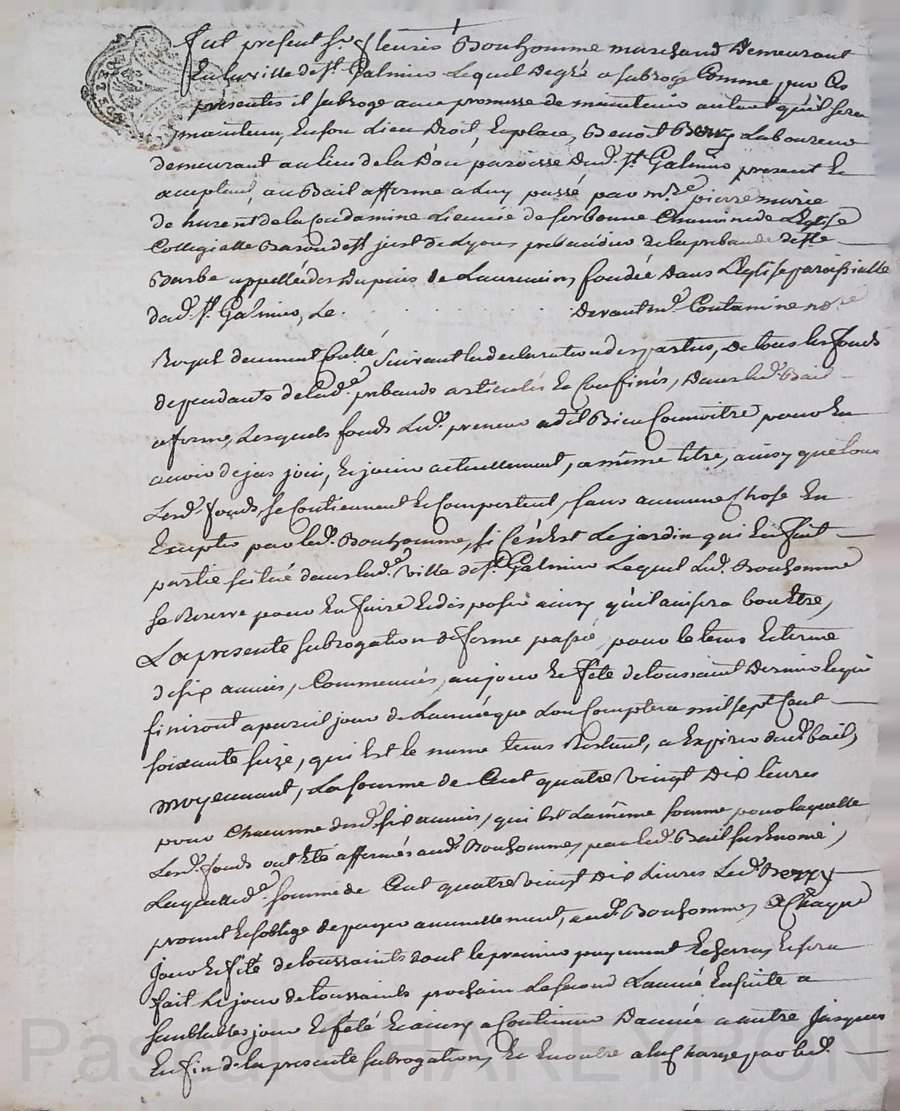 fut present Sr. fleuris Bonhomme marchand Demeurant
En la ville de st. Galmier Lequel De gré a subrogé Comme par Ces
presentes il subroge avec promesse de maintenir autant qu'il sera
maintenu, En son Lieu Droit, Et place, Benoit Berry Laboureur
demeurant au lieu de la Doa paroisse Dud. st. Galmier present Et
acceptant, au Bail afferme a Luy passé par mre. pierre marie
de hurent de la Condamine Licencié de sorbonne Chanoine de L'Eglise
Collegialle Baron de st just de Lyon prebandier de la prebande de ste
Barbe appellée des Dupuis de Laurencin, fondée Dans L'Eglise paroissialle
dud. st. Galmier, Le . . . . . . . . . . Devant me. Contamine nore
Royal deuement Collé. suivant la declaration des parties, De tous les fonds
dependants de lade. prebande articulés Et Confinés, Dans led. Bail
aferme, Lesquels fonds Led. preneur a dit Bien Connoitre pour En
avoir dejas joüi, Et joüir actuellement, a même titre, ainsy que tous
Lesd. fonds se Contiennent Et Comportent, sans aucune Chose En
Excepter par led. Bonhomme, si Cen'Est Le jardin qui En fait
partie scitué dans lade. ville de st. Galmier Lequel Led. Bonhomme
se Reserve pour En faire Et disposer ainsy qu'il avisera bon Etre,
La presente subrogation de ferme passée, pour le tems Et terme
de six années, Commencées, au jour Et fête de toussaint Dernier Lequi
finiront a pareil jour de L'année que L'on Comptera mil sept Cent
soixante seize, qui Est le meme tems Restant, a Expirer dud. bail,
moyennant, La somme de Cent quatre vingt Dix livres
pour Chacunne desd. six années, qui Est La même somme pour laquelle
Lesd. fonds ont Eté affermés aud. Bonhomme, par led. Bail susenoncé,
Laquelle de. somme de Cent quatre vingt Dix Livres Led. Berry
promet Et soblige de payer annuellement, aud. Bonhomme, a Chaque
jour Et fête de toussaints dont le premier payement Echerra, Et sera
fait Le jour de toussaints prochain Le second L'année Ensuite a
semblable jour Et fête Et ainsy a Continuer D'année a autre jusques
En fin de la presente subrogation, Et En outre a la Charge par led.
Pascal CHAREYRON